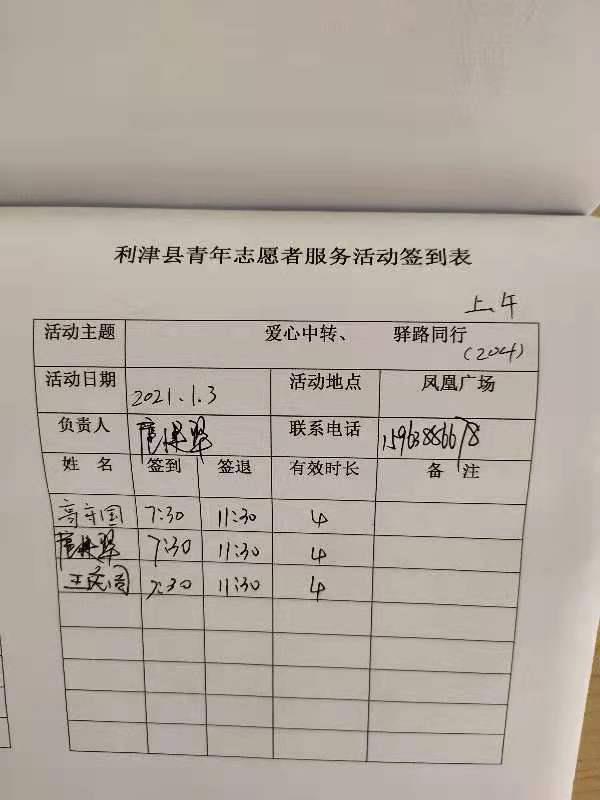 利津县青年志愿者服务活动签到表
上午
活动主题 爱心中转、 驿路同行
(204)
活动日期 2021.1.3 活动地点 凤凰广场
负责人 联系电话 15963886678
姓 名 签到 签退 有效时长 备 注
高守国 7:30 11:30 4
7:30 11:30 4
7:30 11:30 4